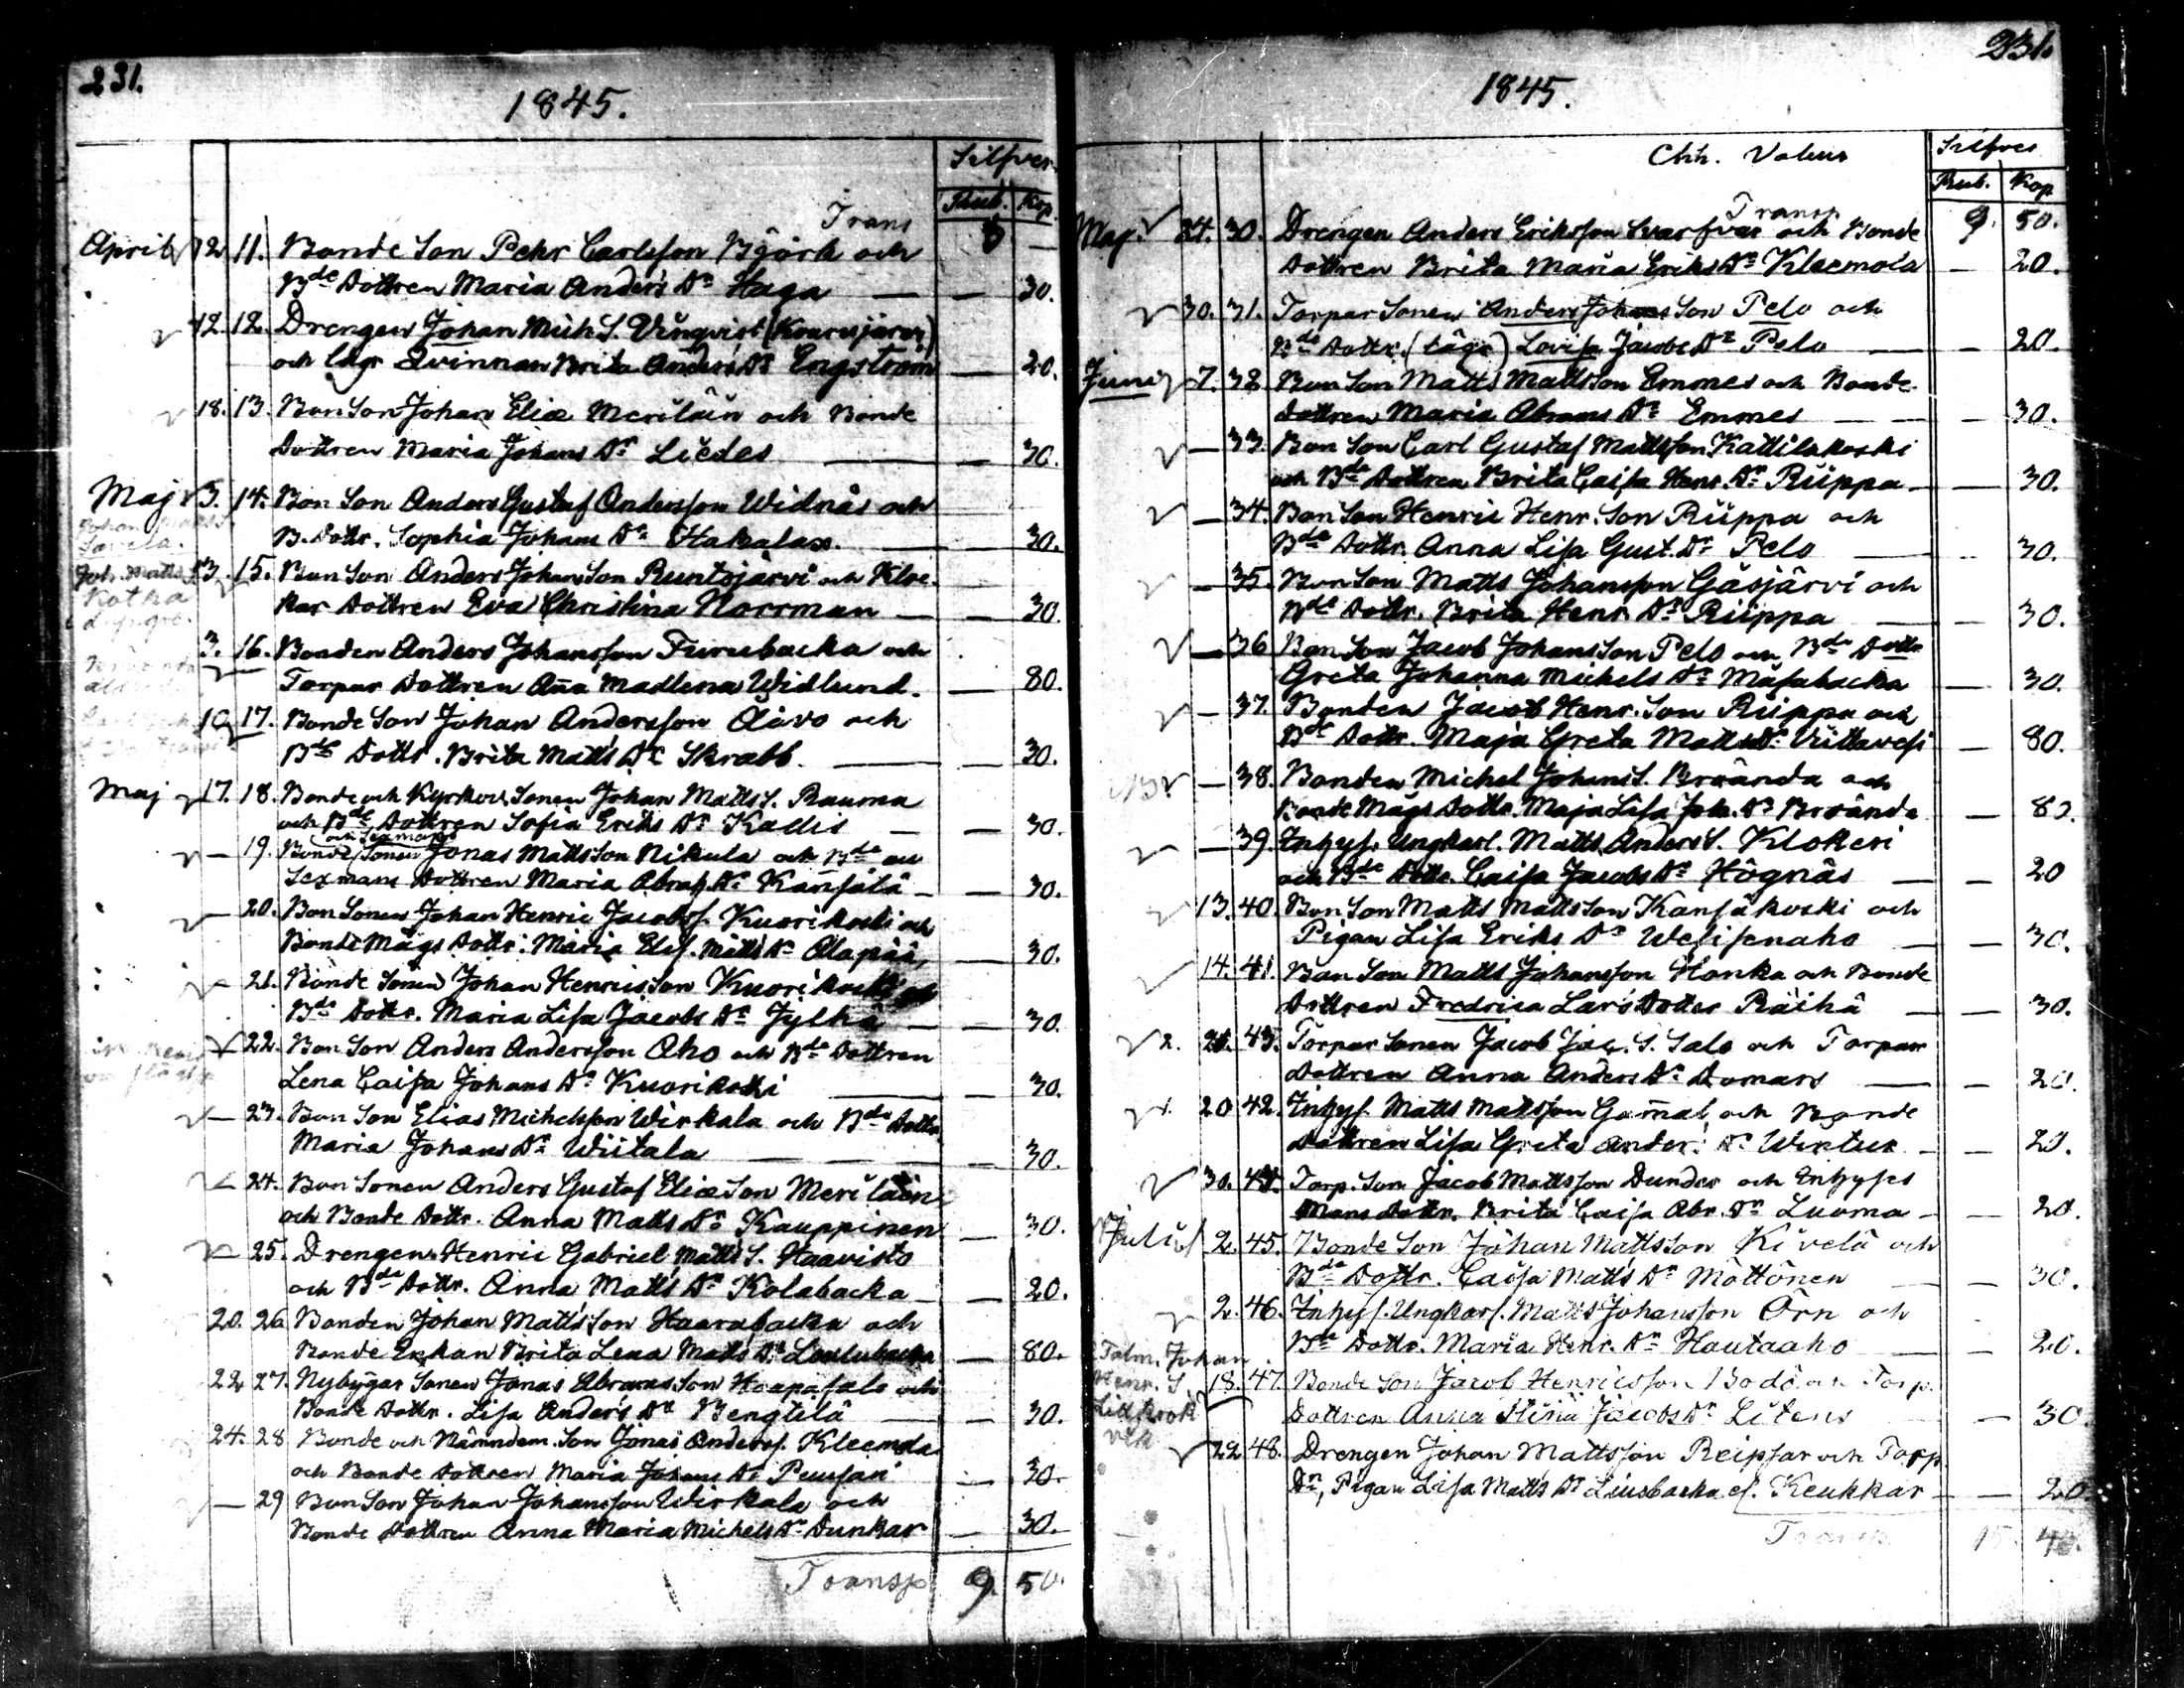 231.
1845.
Silfver
Rub. Kop.
Trans 3 —
April 12 11. Bonde Son Pehr Carlsson Björk och
Bde Dottren Maria Anders Dr Haga — — 30.
12. 12. Drengen Johan Mich S. Vinqvist (Kaurajärvi)
och lägr Qvinnan Brita Anders Dr Engström — 20.
18. 13. Bon Son Johan Eliæ Meriläin och Bonde
Dottren Maria Johans Dr Liedes — — 30.
Maj 3. 14. Bon Son Anders Gustaf Andersson Widnäs och
B. Dottr. Sophia Johans Dr Hakalax. — — 30.
Joh. Matts 3. 15. Bon Son Anders Johansson Runtsjärvi och Kloc-
Kotka
kar Dottren Eva Christina Norrman — — 30.
3. 16. Bonden Anders Johansson Furubacka och
Torpar Dottren Aña Madlena Widlund. — 80.
10 17. Bonde Son Johan Andersson Åivo och
Bde Dottr. Brita Matts Dr Skrabb. — — 30.
Maj 17. 18. Bonde och Kyrkov. Sonen Johan Matts S. Rauma
och Bde Dottren Sofia Eriks Dr Kallis — — 30.
och Sexmans
— 19. Bonde Sonen Jonas Mattsson Nikula och Bde och
Sexmans Dottren Maria Abrah. Dr Kansala — — 30.
20. Bon Sonen Johan Henric Jacobss. Kuorikoski och
Bonde Mågs Dottr. Maria Elis. Matts Dr Alapää, — 30.
— 21. Bonde Sonen Johan Henricsson Kuorikoski och
Bde Dottr. Maria Lisa Jacobs Dr Jylhä — — 30.
22. Bon Son Anders Andersson Aho och Bde Dottren
Lena Caisa Johans Dr Kuorikoski — 30.
— 23. Bon Son Elias Michelsson Wirkala och Bde Dottr.
Maria Johans Dr Wiitala — — 30.
24. Bon Sonen Anders Gustaf Eliæ Son Meriläin
och Bonde Dottr. Anna Matts Dr Kauppinen — 30.
— 25. Drengen Henric Gabriel Matts S. Haavisto
och Bde Dottr. Anna Matts Dr Kolabacka — — 20.
20. 26 Bonden Johan Mattsson Haarabacka och
Bonde Enkan Brita Lena Matts Dr Loulubacka — 80.
22 27. Nybygar Sonen Jonas Abramsson Haapasalo och
Bonde Dottr. Lisa Anders Dr Bengtilä — — 30.
24. 28 Bonde och Nämndem. Son Jonas Anderss. Kleemola
och Bonde Dottren Maria Johans Dr Puusari — 30.
— 29 Bon Son Johan Johansson Wirkala och
Bonde Dottren Anna Maria Michels Dr Dunkar — 30.
Transp 9. 50.
231.
1845.
Silfver
Rub. Kop
Transp 9. 50.
Maj. 24. 30. Drengen Anders Eriksson Svarfvar och Bonde
Dottren Brita Maria Eriks Dr Kleemola — 20.
30. 31. Torpar Sonen Anders Johans Son Pelo och
Bde Dottr. Lovisa Jacobs Dr Pelo — — 20.
Junij 7. 32 Bon Son Matts Mattsson Emmes och Bonde
Dottren Maria Abrams Dr Emmes — — 30.
— 33. Bon Son Carl Gustaf Mattsson Kattilakoski
och Bde Dottren Brita Caisa Henr. Dr Riippa — — 30.
— 34. Bon Son Henric Henr. Son Riippa och
Bde Dottr. Anna Lisa Gust. Dr Pelo — — 30.
— 35. Bon Son Matts Johansson Gäsjärvi och
Bde Dottr. Brita Henr. Dr Riippa — 30.
— 36 Bon Son Jacob Johansson Pelo och Bde Dottr
Greta Johanna Michels Dr Mäsabacka — 30.
— 37. Bonden Jacob Henr. Son Riippa och
Bde Dottr. Maja Greta Matts Dr Viittavesi — 80.
— 38. Bonden Michel Johans S. Brända och
Bonde Mågs Dottr. Maja Lisa Joh. Dr Brände — 80.
— 39 Inhys. Ungkarl. Matts Anders S. Klokeri
och Bde Dottr. Caisa Jacobs Dr Högnäs — — 20
13. 40. Bon Son Matts Mattsson Kansäkoski och
Pigan Lisa Eriks Dr Wesisenaho — — 30.
14. 41. Bon Son Matts Johansson Honka och Bonde
Dottren Fredrica Lars Dotter Räihä — — 30.
2. 20. 43. Torpar Sonen Jacob Jac. S. Salo och Torpar
Dottren Anna Anders Dr Domars — — 20.
1. 20 42. Inhys. Matts Mattsson Gamal och Bonde
Dottren Lisa Greta Anders Dr Wentus — — 20.
30. 44. Torp. Son Jacob Mattsson Dunder och Inhyses
Mans Dottr. Brita Caisa Abr. Dr Luoma — — 20.
Julii 2. 45. Bonde Son Johan Mattsson Kivelä och
Bde Dottr. Caisa Matts Dr Möttönen — — 30.
2. 46. Inhys. Ungkarl. Matts Johansson Örn och
Bde Dottr. Maria Henr. Dr Hautaaho — — 20.
Johan
Henr. S 18. 47. Bonde Son Jacob Henricsson Bodö och Torp.
Dottren Anna Stina Jacobs Dr Litens — — 30.
22 48. Drengen Johan Mattsson Reipsar och Torp.
Dn, Pigan Lisa Matts Dr Liusbacka el. Keukkar — — 20.
Transp 15 40.